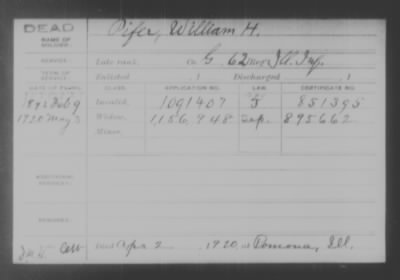 DEAD
NAME OF SOLDIER:
Pifer, William H.
SERVICE:
Late rank, Co. G, 62 Reg't Ill. Inf.
TERM OF SERVICE:
Enlisted , 1 Discharged , 1
DATE OF FILING. CLASS. APPLICATION NO. LAW. CERTIFICATE NO.
1892 Feb 9 Invalid, 1091407 J 851395
1920 May 3 Widow, 1,156,948 895662
Minor,
ADDITIONAL SERVICES:
REMARKS:
Died Apr. 2 1920, at Pomona, Ill.